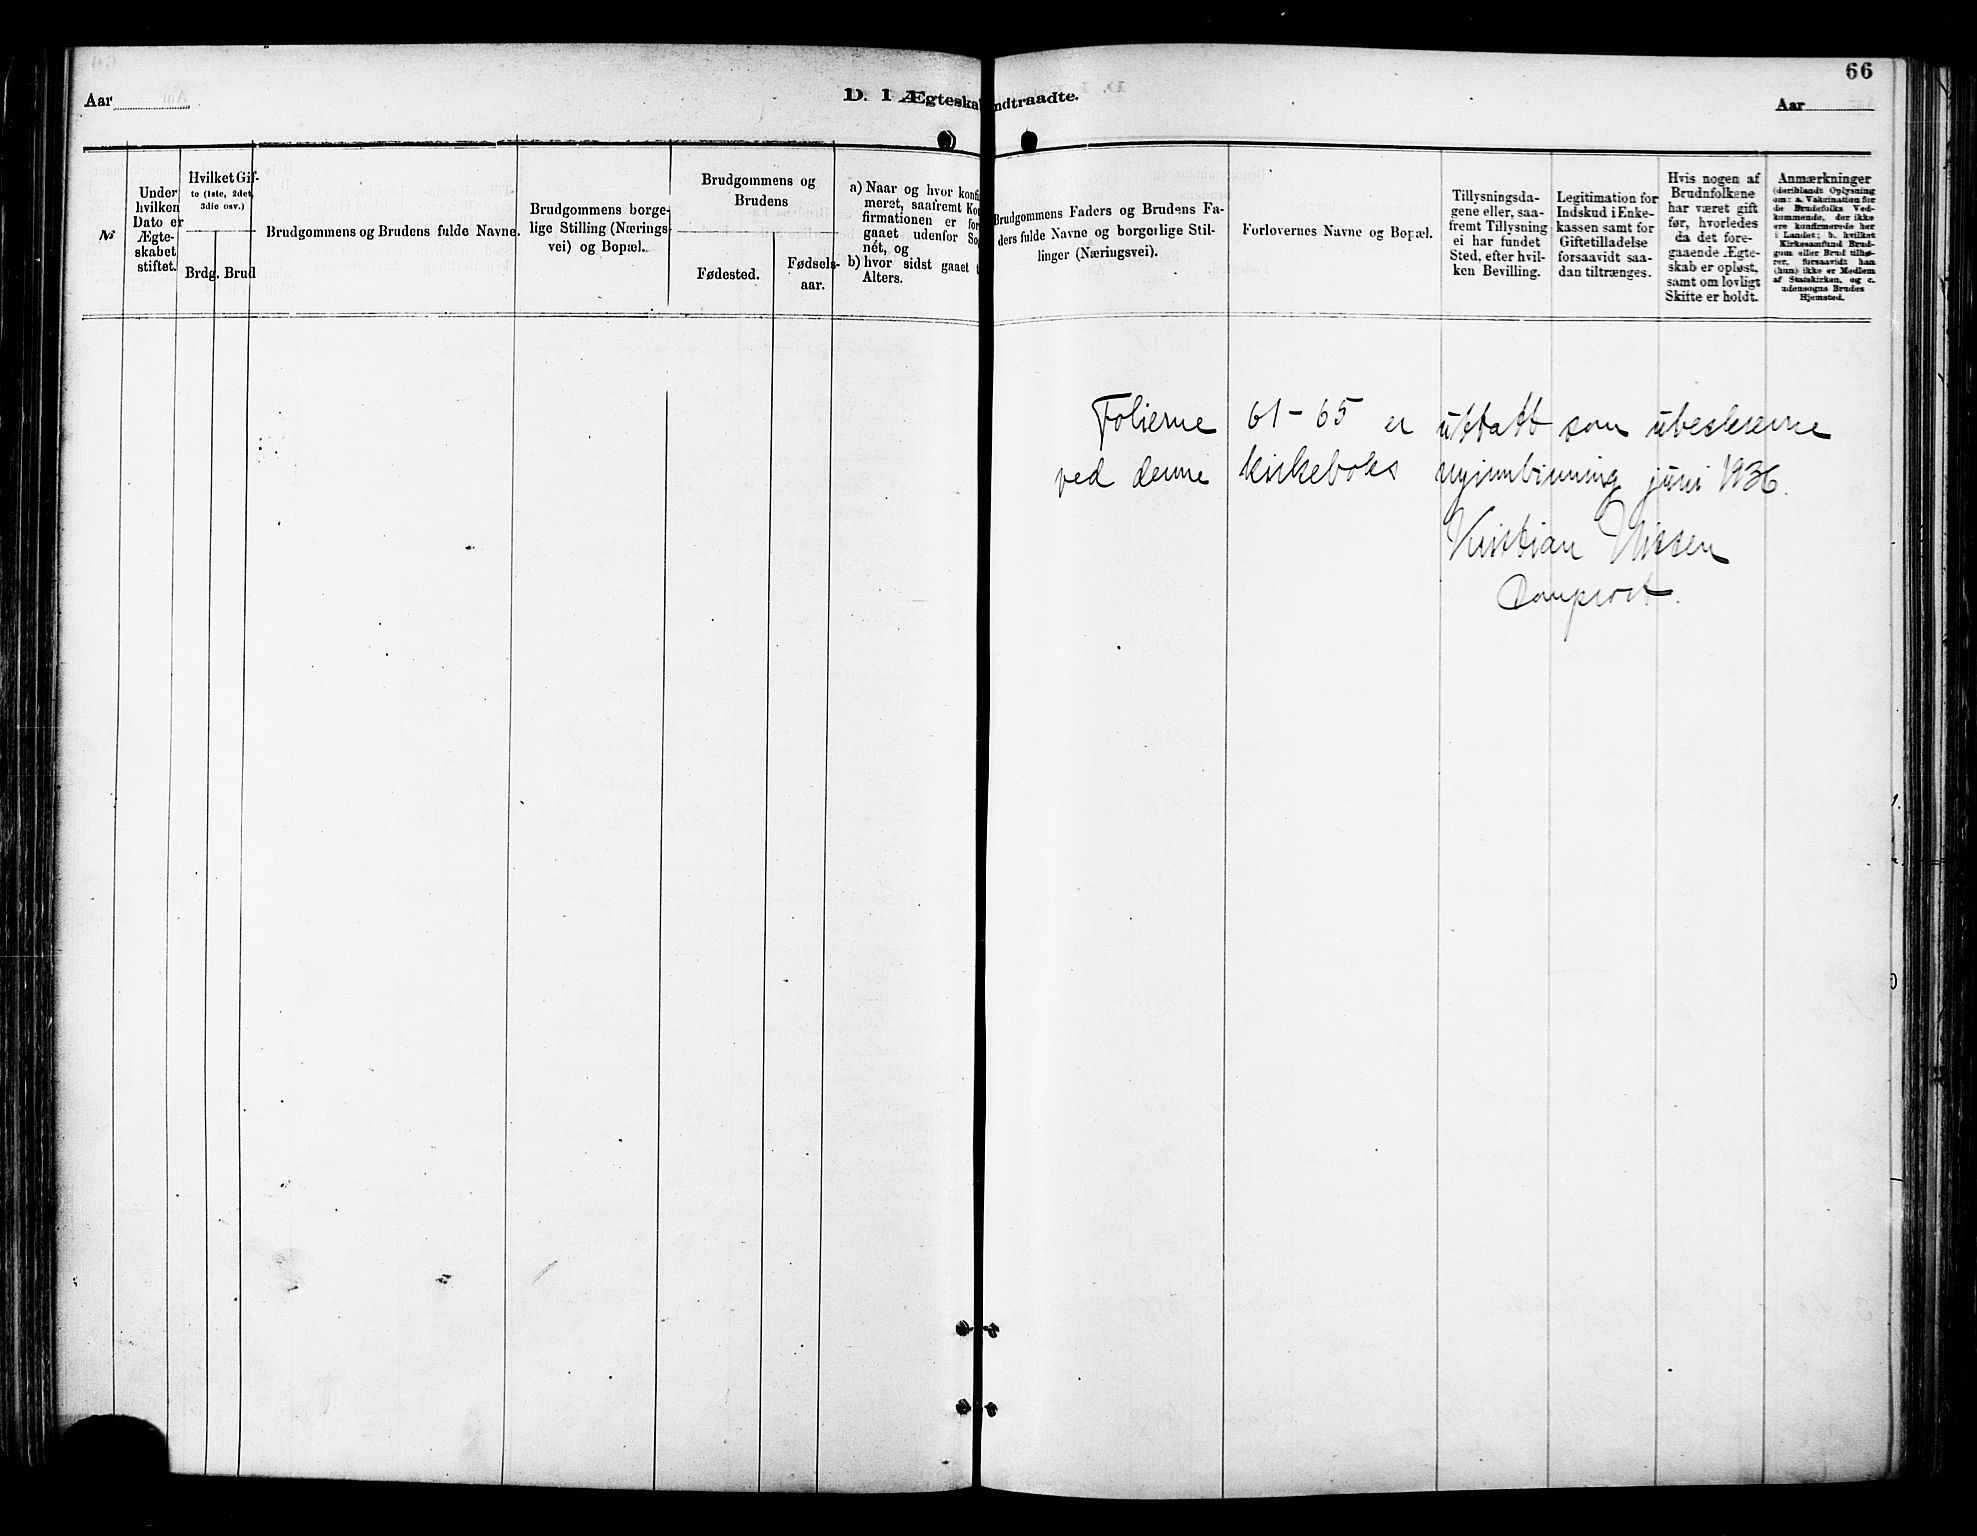 66
Aar
D. I Ægteska
ndtraadte.
Aar
№
Under
hvilken
Dato er
Ægte-
skabet
stiftet.
Hvilket Gif-
te (1ste, 2det,
3die osv.)
Brdg. Brud
Brudgommens og Brudens fulde Navne.
Brudgommens borge-
lige Stilling (Nærings-
vei) og Bopæl.
Brudgommens og
Brudens
Fødested.
Fødsels-
aar.
a) Naar og hvor konfi
meret, saafremt Kon
firmationen er for
gaaet udenfor So
nét, og
b) hvor sidst gaaet t
Alters.
Brudgommens Faders og Brudens Fa-
ders fulde Navne og borgerlige Stil-
linger (Næringsvei).
Forlovernes Navne og Bopæl.
Tillysningsda-
gene eller, saa-
fremt Tillysning
ei har fundet
Sted, efter hvil-
ken Bevilling.
Legitimation for
Indskud i Enke-
kassen samt for
Giftetilladelse
forsaavidt saa-
dan tiltrænges.
Hvis nogen af
Brudnfolkene
har været gift
før, hvorledes
da det fore-
gaaende Ægte-
skab er opløst,
samt om lovligt
Skifte er holdt.
Anmærkninger
(deriblandt Oplysning
om: a. Vakcination for
de Brudefolks Ved-
kommende, der ikke
ere konfirmerede her
i Landet; b. hvilket
Kirkesamfund Brud-
gom eller Brud tilhø-
rer, forsaavidt han
(hun) ikke er Medlem
af Statskirken, og c.
udensogns Brudes
Hjemsted.
Folierne 61-65 er uttatt som ubeskrevne
ved denne kirkeboks nyinnbinning juni 1936.
Kristian Nissen
Domprost.